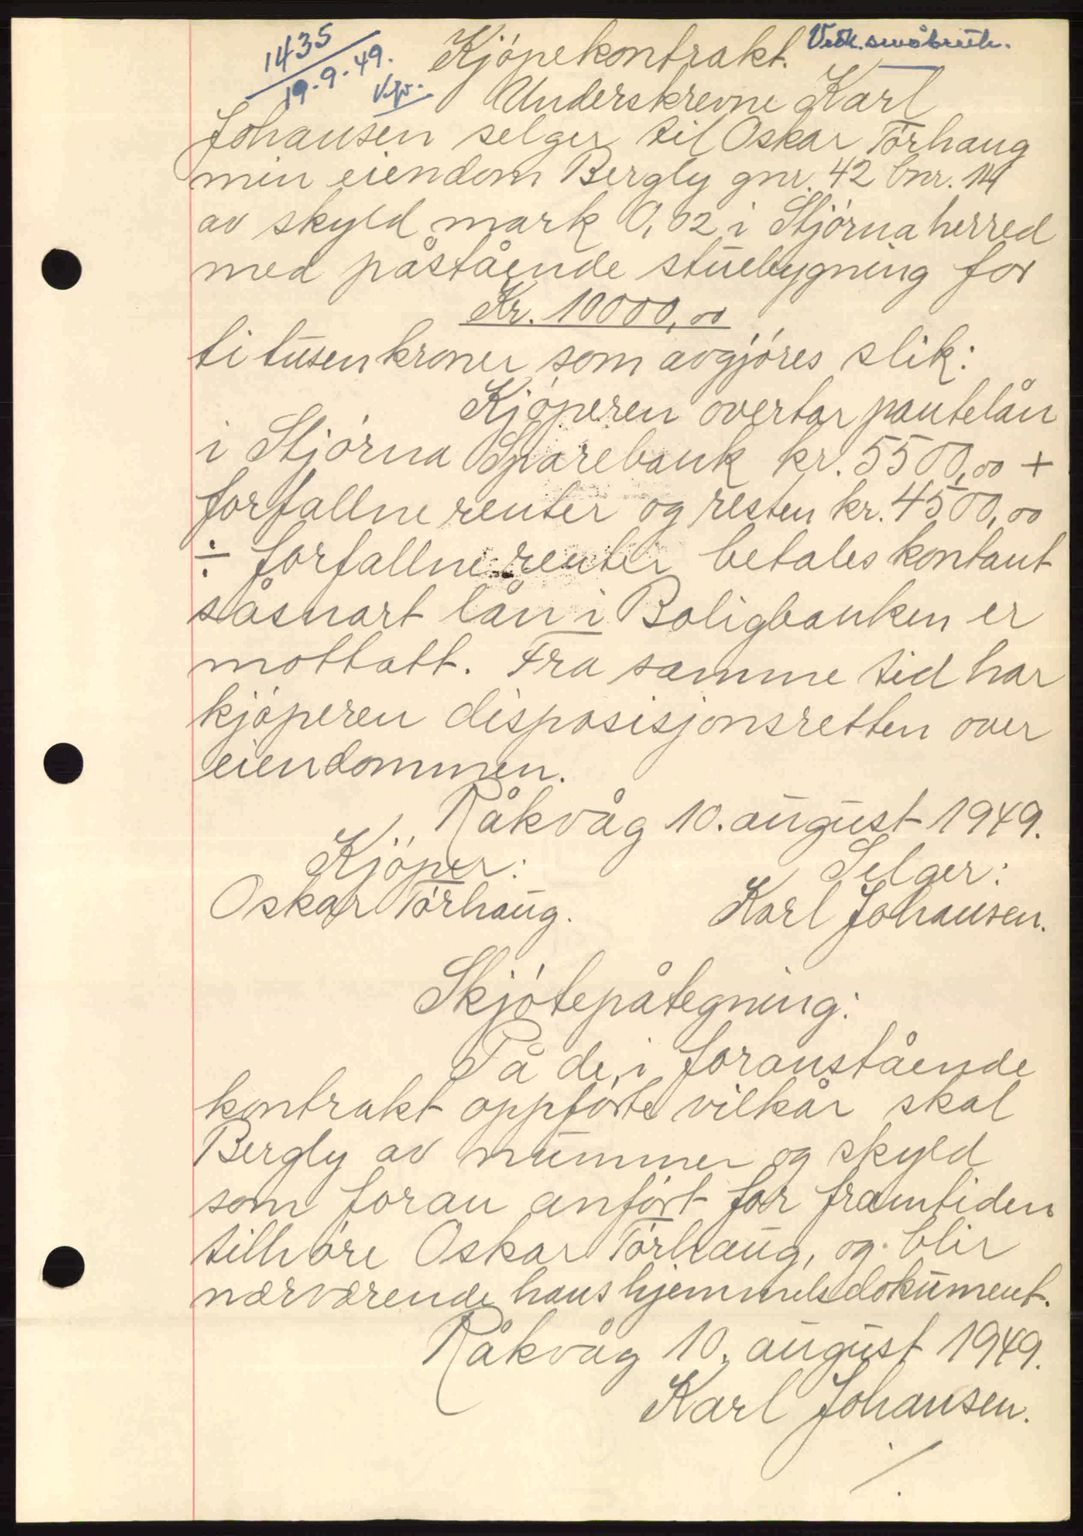 1435
19.9.49.
Vedk. småbruk.
Kjøpekontrakt.
Underskrevne Karl
Johansen selger til Oskar Tørhaug
min eiendom Bergly gnr. 42 bnr. 14
av skyld mark 0,02 i Stjørna herred
med påstående stuebygning for
Kr. 10000,00
titusen kroner som avgjøres slik:
Kjøperen overtar pantelån
i Stjørna Sparebank kr. 5500,00 +
forfallne renter og resten kr. 4500,00
÷ forfallne renter betales kontant
såsnart lån i Boligbanken er
mottatt. Fra samme tid har
kjøperen disposisjonsretten over
eiendommen.
Råkvåg 10. august 1949.
Kjøper: Selger:
Oskar Tørhaug. Karl Johansen.
Skjøtepåtegning:
På de i foranstående
kontrakt oppførte vilkår skal
Bergly av nummer og skyld
som foran anført for framtiden
tilhøre Oskar Tørhaug, og blir
nærværende hans hjemmelsdokument.
Råkvåg 10. august 1949.
Karl Johansen.